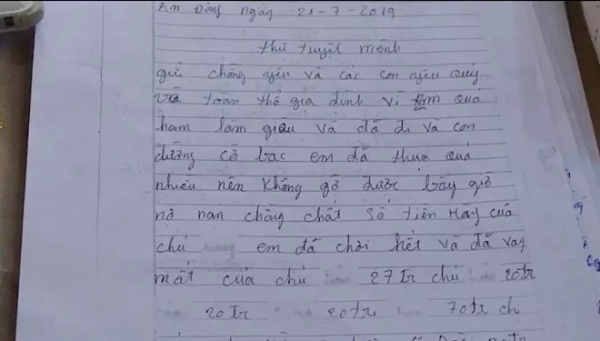 An Đông ngày 21-7-2019
thư tuyệt mệnh
gửi chồng yêu và các con yêu quý
và toàn thể gia đình vì em quá
ham làm giàu và đã đi và con
đường cờ bạc em đã thua quá
nhiều nên không gỡ được bây giờ
nợ nan chồng chất số tiền này của
chú em đã chơi hết và đã vay
mất của chú 27tr chú 20tr
20tr 20tr 70tr ch